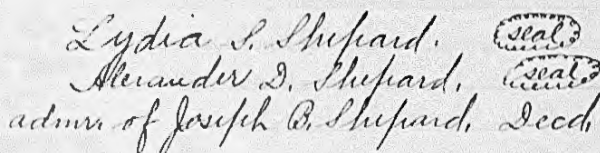 Lydia S. Shepard. (seal)
Alexander D. Shepard. (seal)
admr. of Joseph B. Shepard. Decd.